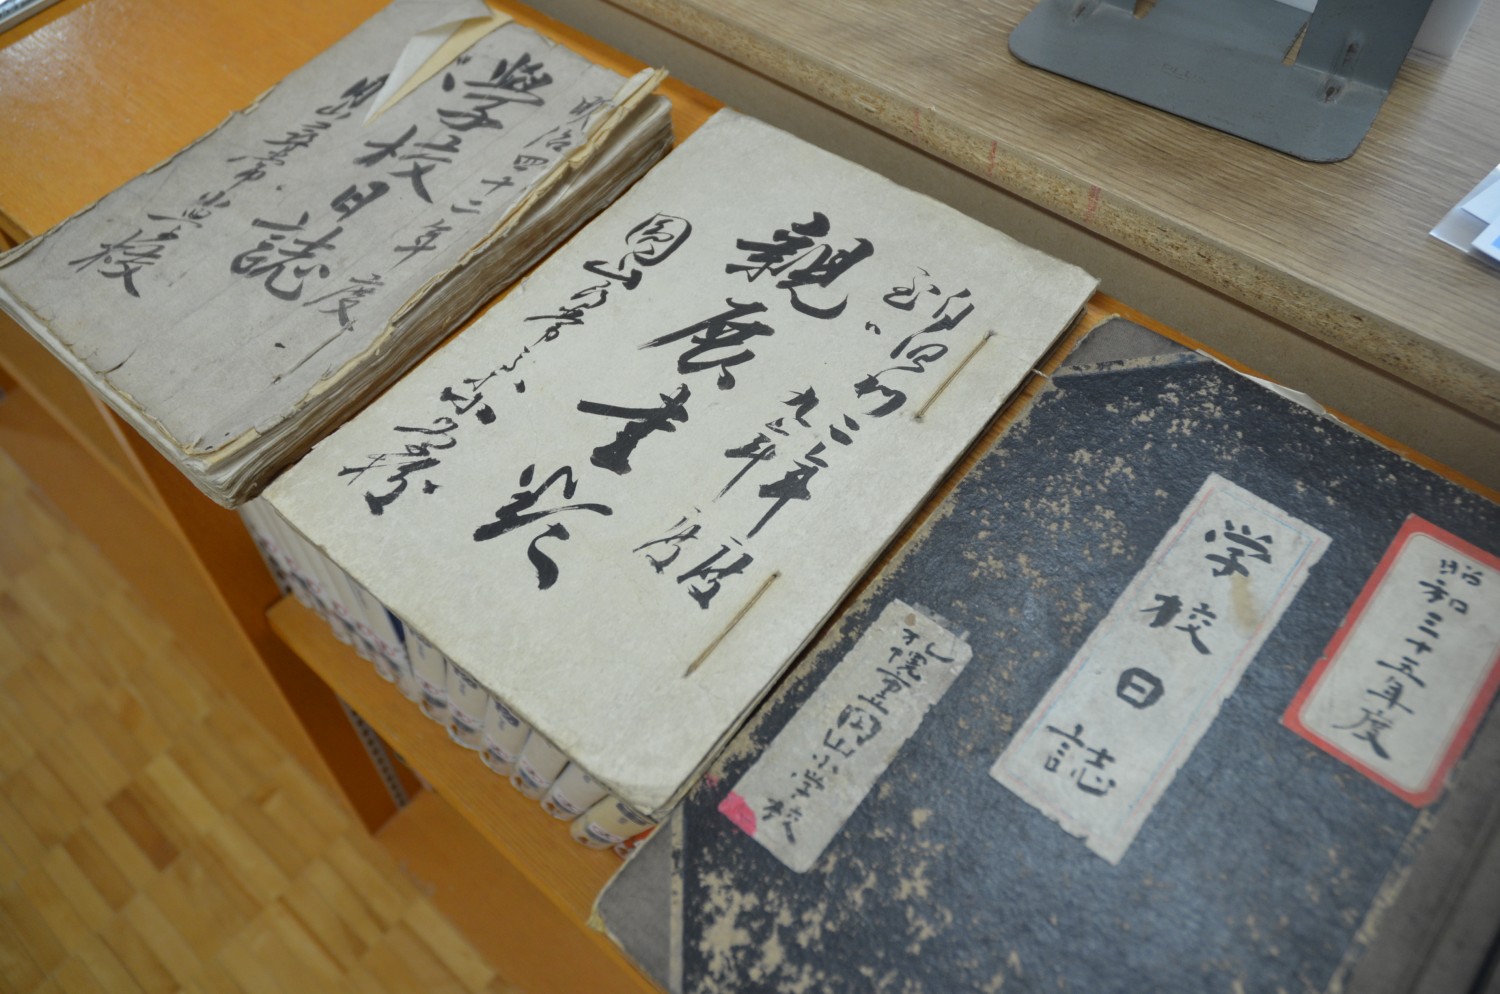 明治四十二年度
學校日誌
円山尋常小學校
自昭和二年度
至〃九年度
親展書類
圓山尋常小学校
昭和三十五年度
学校日誌
札幌市立円山小学校